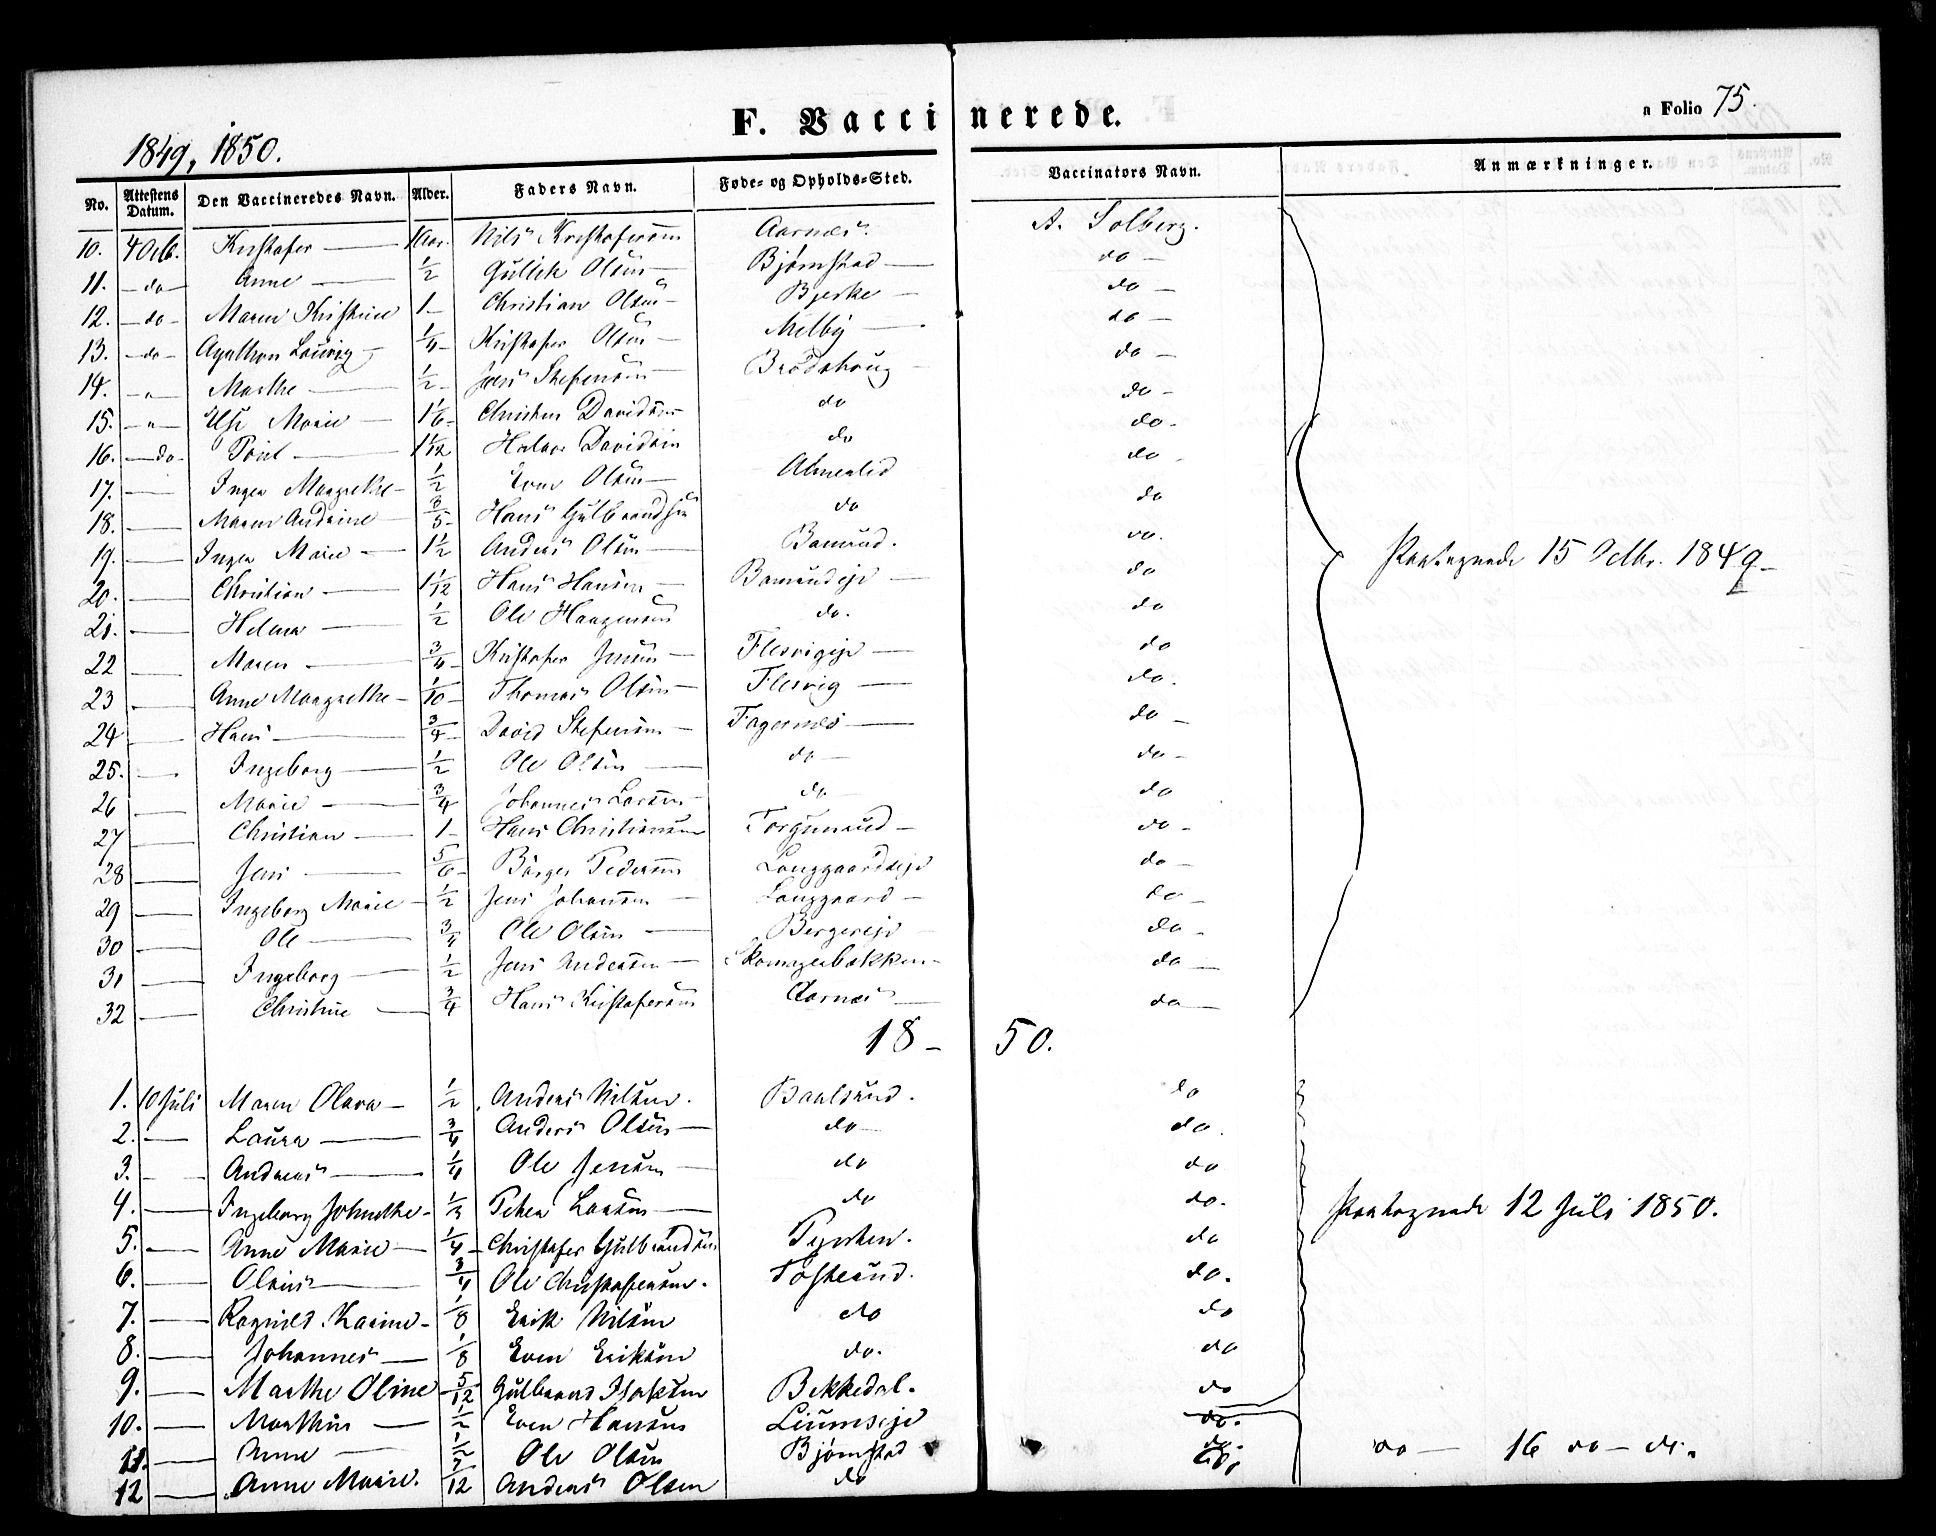 F. Vaccinerede.
a Folio 75.
1849, 1850.
No. Attestens Datum. Den Vaccineredes Navn. Alder. Faders Navn. Føde- og Opholds-Sted. Vaccinators Navn. Anmærkninger.
10. 4 Octb. Kristafer — 1 Aar. Nils Kristofersøn Aarnæs A. Solberg.
11. — do — Anne — 1/2 Gulick Olsen — Bjørnstad — do —
12. — do — Maren Kristine 1 — Christian Olsen — Bjerke — do —
13. — do — Agathon Louvig — 1/4 — Kristafer Olsen — Melby — do —
14. — " Marthe — 1/2 — Jens Stefensøn — Brødshoug — do —
15. — " — Else Marie — 1 1/6 — Christen Davidsen do do —
16. — do — Poul — 1 1/12 Halvor Davidsen do do.
17. — Inger Margrethe — 1/2 Even Olsen — Almerlid do —
18. — Maren Andrine — 3/5 — Hans Gulbrandsen do do
19. — Inger Marie — 1 1/2 Anders Olsen — Bamrud. do.
20. — Christian — 1 1/12 Hans Hansen — Bamrudeje — do
21. — Helena — 1/2 Ole Haagensen do. do
22 — Maren — 3/4 — Kristafer Jensen — Flesvigeje — do
23 — Anne Margrethe — 1/10 — Thomas Olsen — Flesvig — do.
24 — Hans — 3/4 — David Stefensøn — Fagernes — do —
25. — Ingeborg — 1/2 Ole Olsen — do — do —
26 — Marie — 3/4 Johannes Larsen — do — do
27 — Christian — 1 — Hans Christiansen Torgunrud — do —
28 — Jens — 5/6 — Børger Pedersen Langgaardseje do —
29 — Ingeborg Marie — 1/2 Jens Johansen — Langgaard — do —
30 — Ole — 3/4 Ole Olsen — Bergereje — do —
31 — Ingeborg — 1/2 Jens Andersen — Skomagerbakken — do —
32 — Christine — 3/4 Hans Kristofersen Aarnæs — do —
Paategnede 15 Octbr. 1849 —
18 — 50.
1. 10 Juli Maren Olava — 1/2 Anders Nilsen. Baalsrud. do
2. — Laura — 3/4 Anders Olsen — do — do.
3. — Andreas — 1/4 Ole Jensen — do do
4. — Ingeborg Johnethe — 1/3 Peter Larsen — do do.
5. — Anne Marie — 1/4 — Christofer Gulbrandsen do
6. — Olaus — 3/4 Ole Christofersen. Tosterud. do.
7. — Ragnild Karine — 1/8 Erik Nilsen do do
8. — Johannes — 1/8 Even Eriksen do. do
9. — Marthe Oline 5/12 Gulbrand Isaksen Bekkedal. do
10. — Marthus — 1/2 Even Hansen Liumseje do.
11. — Anne — 1/2 Ole Olsen Bjørnstad do.
12 — Anne Marie. 7/12 Anders Olsen do do,
Paategnede 12 Juli 1850.
do — 16 do — do.